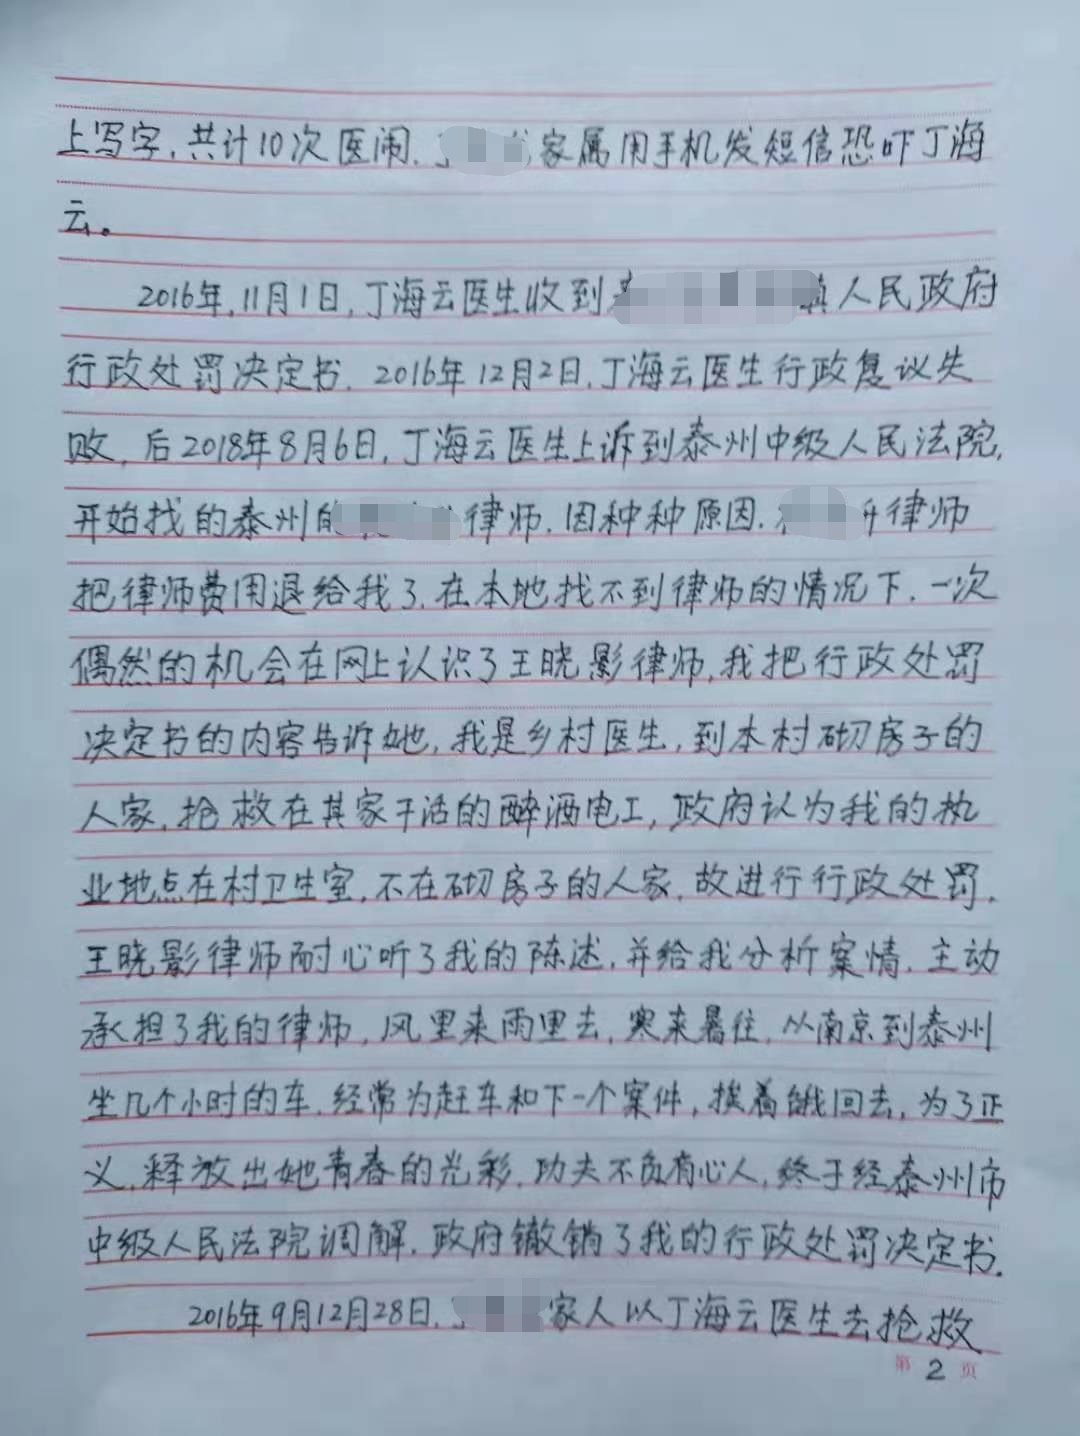 上写字,共计10次医闹,丁 家属用手机发短信恐吓丁海
云。
2016年,11月1日,丁海云医生收到泰 镇人民政府
行政处罚决定书. 2016年12月2日,丁海云医生行政复议失
败,后2018年8月6日,丁海云医生上诉到泰州中级人民法院,
开始找的泰州的 律师.因种种原因. 律师
把律师费用退给我了.在本地找不到律师的情况下.一次
偶然的机会在网上认识了王晓影律师,我把行政处罚
决定书的内容告诉她,我是乡村医生,到本村砌房子的
人家,抢救在其家干活的醉酒电工,政府认为我的执
业地点在村卫生室,不在砌房子的人家,故进行行政处罚.
王晓影律师耐心听了我的陈述,并给我分析案情,主动
承担了我的律师,风里来雨里去,寒来暑往,从南京到泰州
坐几个小时的车.经常为赶车和下一个案件,挨着饿回去,为了正
义,释放出她青春的光彩.功夫不负有心人,终于经泰州市
中级人民法院调解.政府撤销了我的行政处罚决定书.
2016年9月12月28日,丁 家人以丁海云医生去抢救
第 2 页